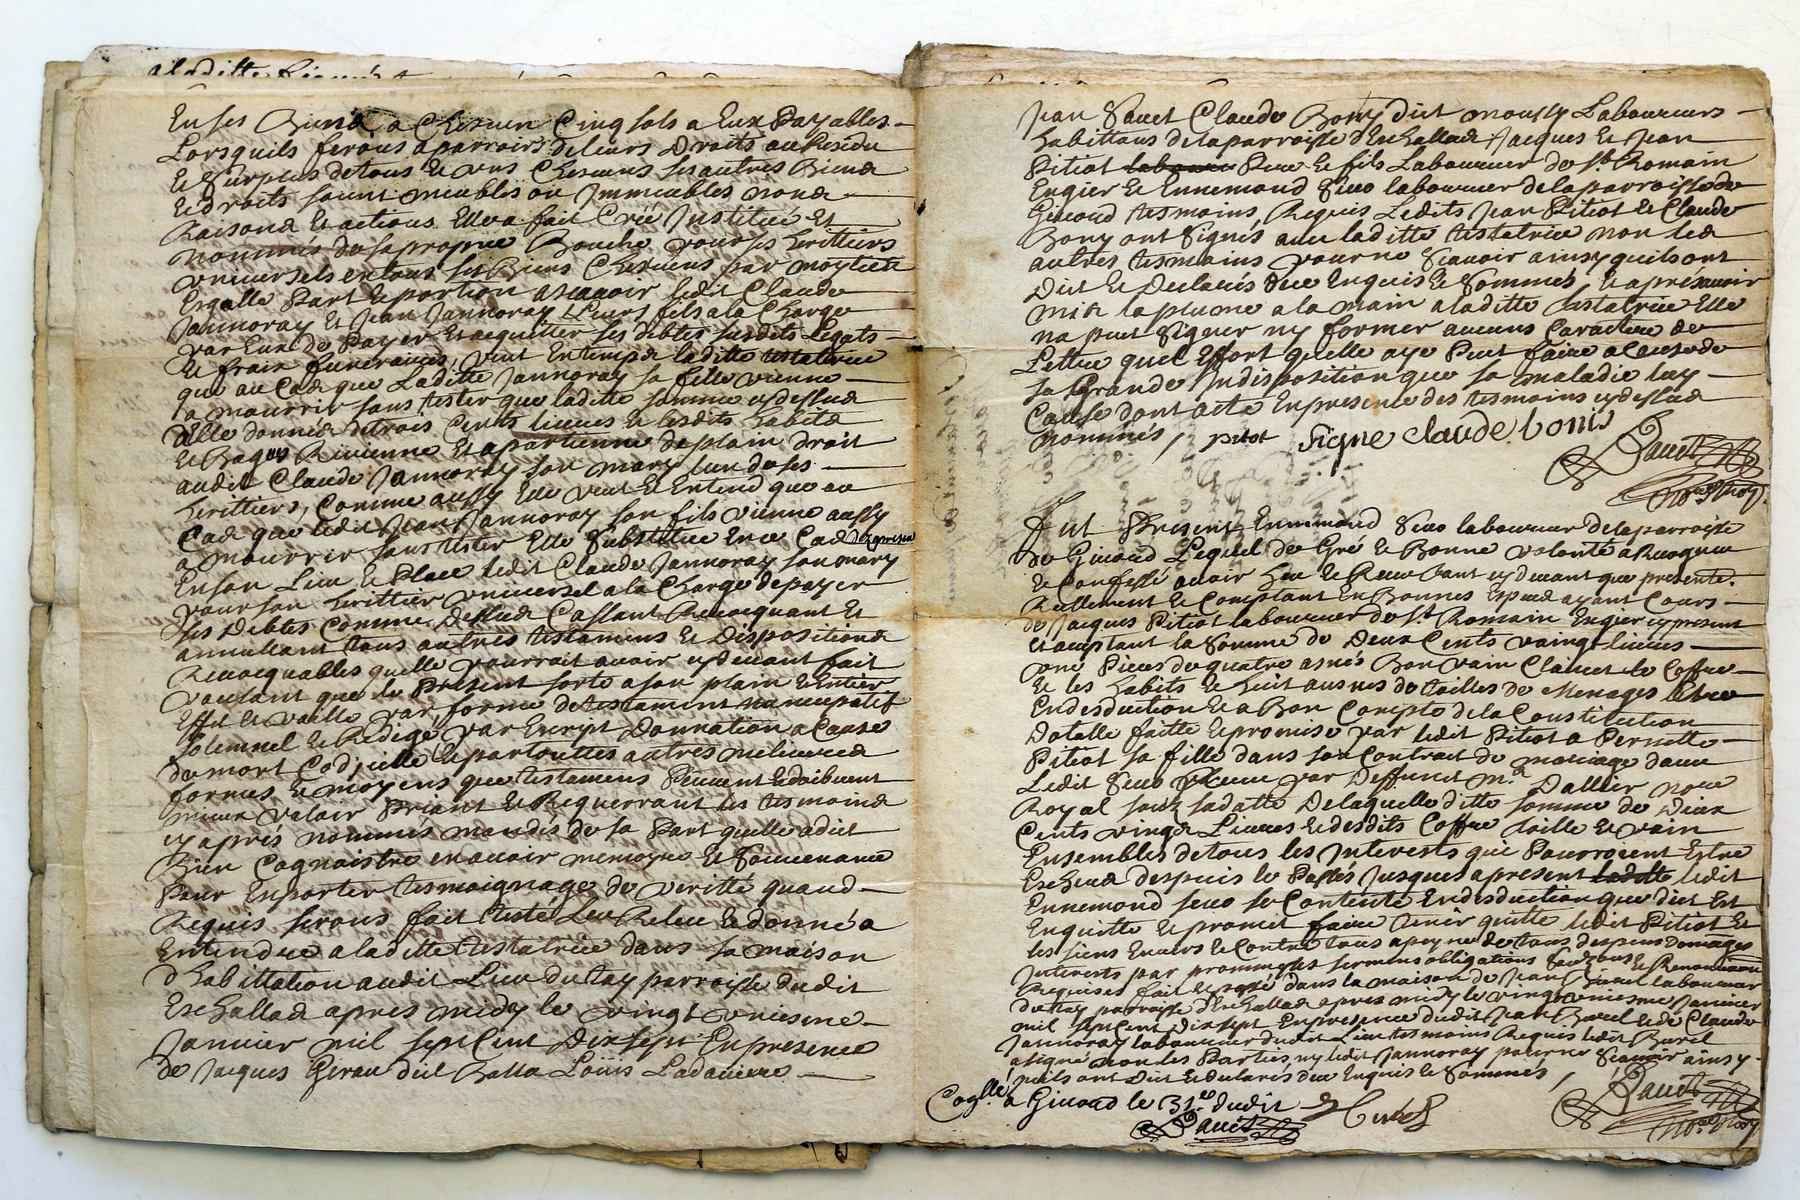 En ses Biens a Chescun Cinq sols a Eux Payables
Lorsquils ferons aparroirs deleurs Droits au Residu
Et Surplus detous Et uns Chescuns ses autres Biens
Et droits soint meubles ou Immeubles noms
Raisons Et actions Elle a fait Créé Institué Et
nommés de sa propre Bouche pour ses heritiers
universels en tous ses Biens Chescuns par moytiée
Esgalle Part Et portion ascauoir ledit Claude
Jannoray Et Jean Jannoray Leurs fils a la Charge
par Eux de Payer Et acquitter ses debtes susdits Legats
Et frais funeraires, veut Entemps laditte testatrice
que au Cas que Laditte Jannoray sa fille vienne
a mourrir sans tester que laditte somme cy dessus
Elle donnée de trois Cents liures Et lesdits habits
Et Bagues Reuienne Et apartienne deplain droit
audit Claude Jannoray son mary lun de ses
heritiers, Comme aussy Elle veut Et Entend que au
Cas que ledit Jean Jannoray son fils vienne aussy
a mourrir sans tester Elle Substitue En ce Cas
En son Lieu Et Place ledit Claude Jannoray son mary
pour son heritier vniversel a la Charge de payer
ses Debtes Comme dessus Cassant Reuocquant Et
annullant tous autres testamens Et Dispositions
Reuocquables quelle pourrait auoir cy deuant fait
voulant que le Present sorte a son plain Et Entier
Effet Et vaille par forme detestament nuncupatif
solemnel Et Redigé par Escript Donnation a Cause
de mort Codicille Et partouttes autres meilleures
formes Et moyens que testamens Peuuent Et doibuent
mieux valair Priant Et Requerrant les tesmoins
cy aprés nommés mandés de sa Part quelle a dict
Bien Cognoistre en auoir memoyre Et Souuenance
Pour En porter tesmoignage de veritté quand
Requis serons fait testé Leu Releu Et donné a
Entendre a laditte testatrice dans sa maison
d'habittation audit Lieu du tay parroisse dudit
Eschallas apres midy le vingt vniesme
Januier mil sept Cent Dix sept En presence
de Jacques Girau dit Balta Loüis Ladauiere
Jean Sauet Claude Bony dict mously Laboureurs
habittans delaparroisse d'Eschallas Jacques Et Jean
Pitiot laboureur Pere Et fils Laboureur de St. Romain
Engier Et Ennemond Seuo laboureur delaparroisse de
Giuord tesmoins Requis Lesdits Jean Pitiot Et Claude
Bony ont Signés auec laditte testatrice non les
autres tesmoins pour ne Scauoir ainsy quils ont
Dict Et Declarés deue Enquis Et Sommés, Et aprés auoir
mis la plume a la main a laditte testatrice Elle
na peut Signer ny former aucuns Caractere de
Lettre quel Effort quelle aye Peut faire a Cause de
sa Grande Indisposition que sa maladie luy
Cause dont acte En presence des tesmoins cy dessus
nommés, pitot Signe claude. bonis
Sauet
Nore. Roy.
Fut Present Ennemond Seuo laboureur delaparroisse
de Giuord Lequel de Gré Et Bonne volonté a Recogneu
Et Confessé auoir heu Et Receu tant cy deuant que presentt.
Reellement Et Comptant En Bonnes Especes ayant Cours
de Jacques Pitiot laboureur de St Romain Engier cy present
Et acceptant la Somme de Deux Cents vaingt liures
une Pieces de quatre asnés Bon vain Clairet le Coffre
Et les habits Et huit ausnes de toilles de Menages
En desduction Et a Bon Compte de la Constitution
Dotalle faitte Et promise par ledit Pitiot a Pernette
Pitiot sa fille dans son Contrait de mariage dauec
Ledit Seuo Receu par Deffunct Me. Dallier nore
Royal soubz sa datte Delaquelle ditte somme de Deux
Cents vingt Liures Et desdits Coffre toille Et vain
Ensembles de tous les Interests qui Pourroient Estre
Escheus despuis le Passés Jusques a present laditte ledit
Ennemond seuo se Contente En desduction que dict Est
En quitte Et promet faire tenir quitte ledit Pitiot Et
les siens Enuers Et Contre tous a peyne de tous despens Domages
Interests par promesses sermens obligations Et Renonciaon
Requises fait Et passé dans la maison de Jean Burel laboureur
du tay parroisse d'Eschallas apres midy le vingt vniesme Januier
mil sept Cent dix sept En presence dudit Jean Burel Et de Claude
Jannoray laboureur dudit Lieu tesmoins Requis ledit Burel
a signé non les Parties ny ledit Jannoray pour ne Scauoir ainsy
quils ont Dict Et declarés deue Enquis Et Sommés,
Cog.llé a Giuord le 31.e dudit
Sauet
Sauet
Nore. Roy